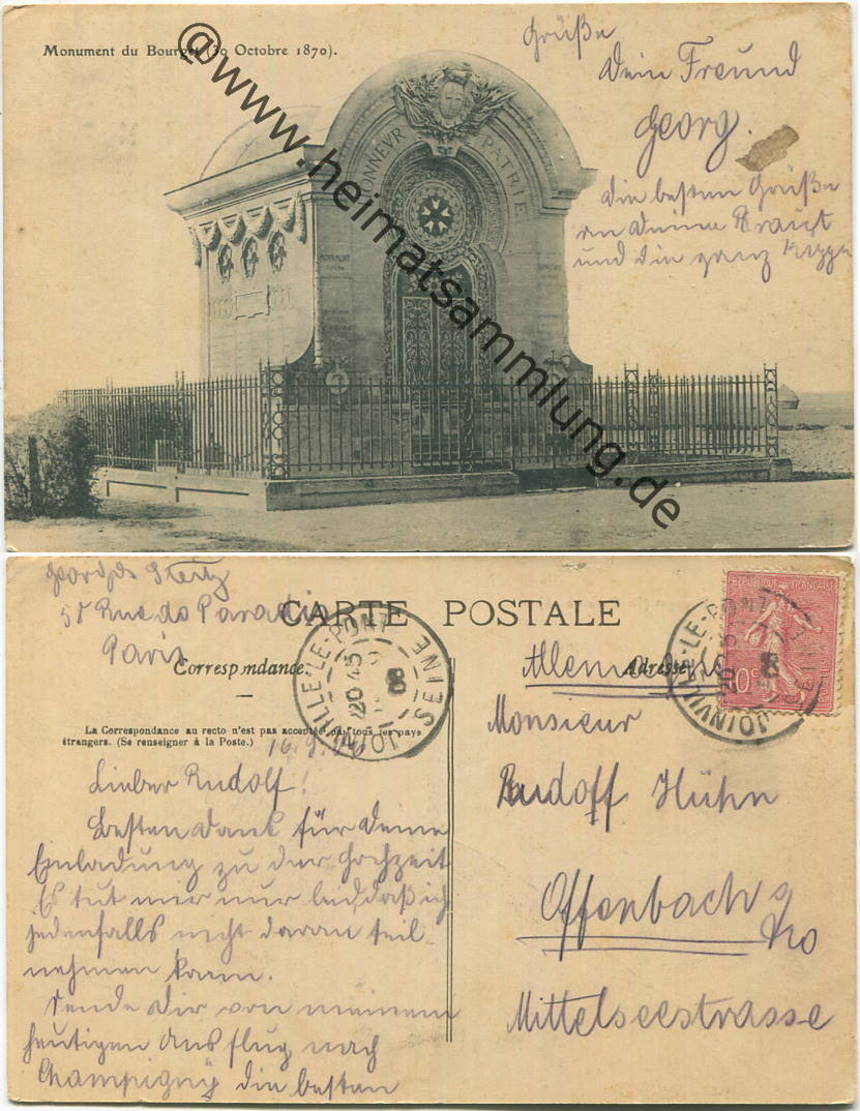 Monument du Bourget (30 Octobre 1870).
Grüße
Dein Freund
Georg.
Die besten Grüße
an Deine Braut
und die ganz
HONNEVR PATRIE
@www.heimatsammlung.de
Georges
51 Rue de Paradis
Paris
CARTE POSTALE
Correspondance.
Adresse
La Correspondance au recto n'est pas acceptée par tous les pays
étrangers. (Se renseigner à la Poste.)
JOINVILLE-LE-PONT SEINE
20 45
06
REPUBLIQUE FRANÇAISE
10
JOINVILLE-LE-PONT SEINE
Lieber Rudolf!
Besten Dank für Deine
Einladung zu der Hochzeit
Es tut mir nur leid, daß ich
jedenfalls nicht daran teil-
nehmen kann.
Sende Dir von meinem
heutigen Ausflug nach
Champigny die besten
Allemagne
Monsieur
Rudolf Hühn
Offenbach a/
Mittelseestrasse